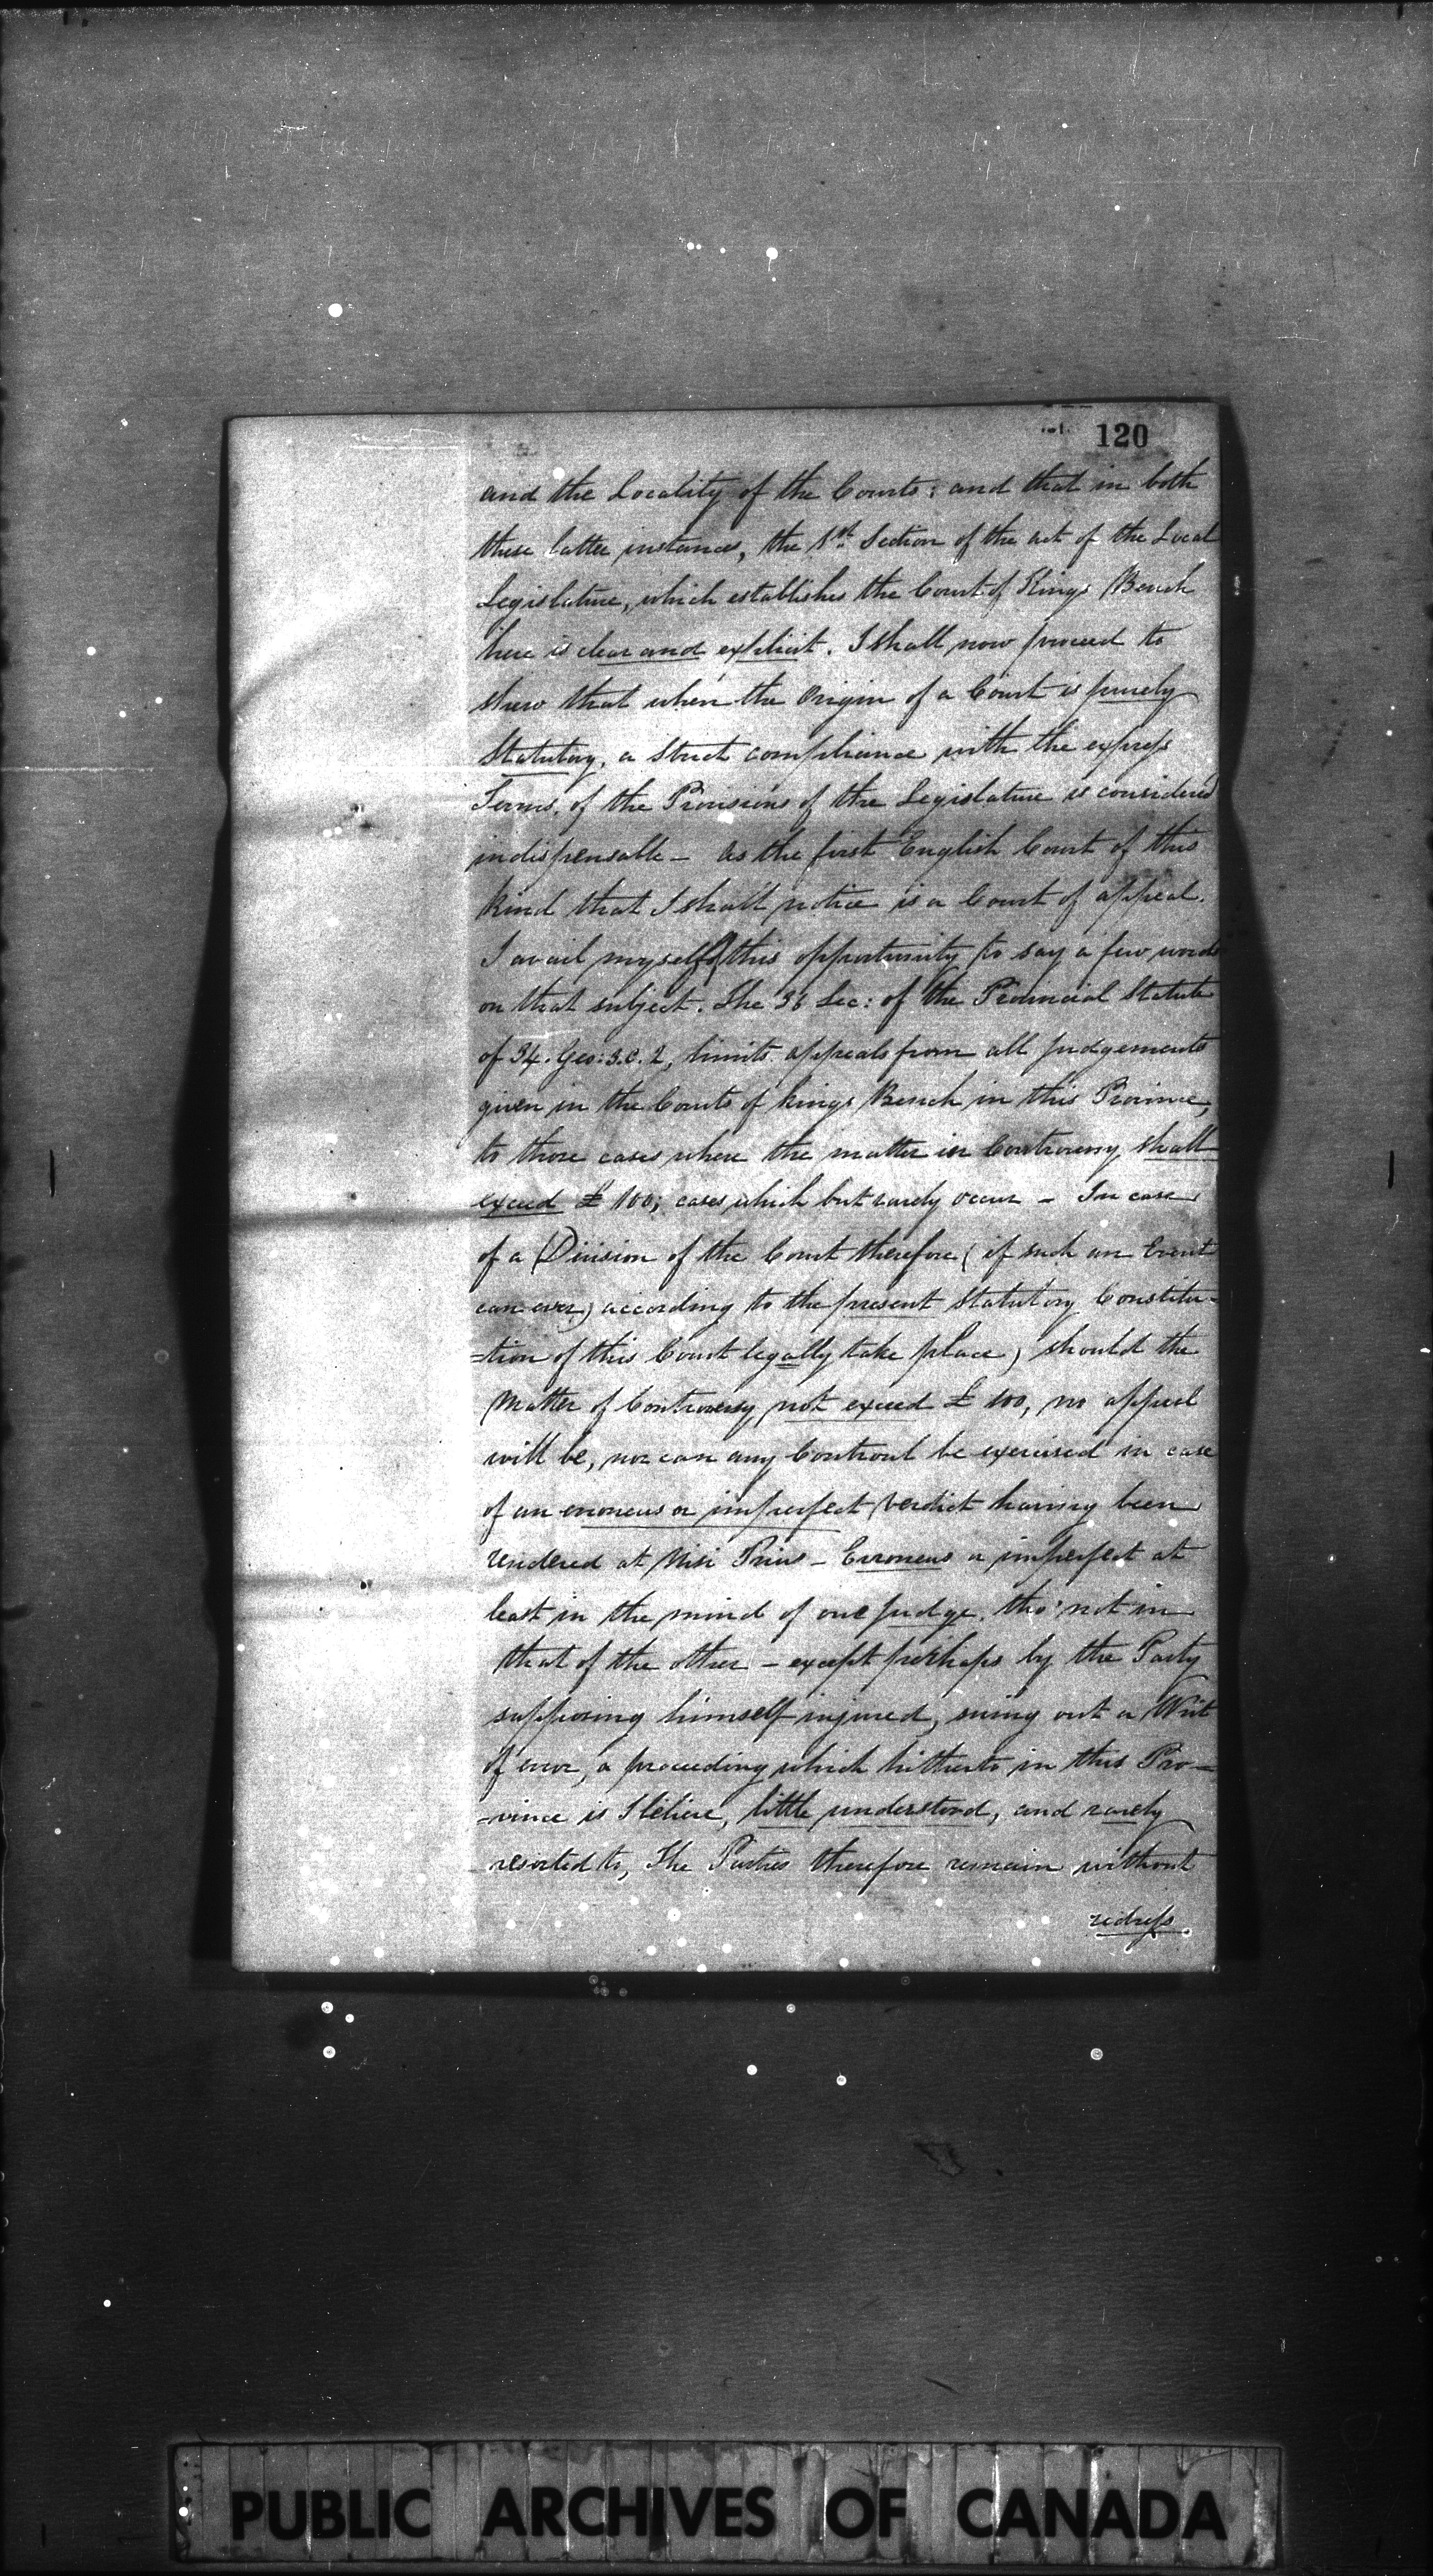 120
and the Locality of the Courts: and that in both
these latter instances, the 1st Section of the act of the Local
Legislature, which establishes the Court of Kings Bench
here is clear and explicit. I shall now proceed to
shew that when the Origin of a Court is purely
Statutory, a strict compliance with the express
Terms, of the Provisions of the Legislature is considered
indispensable - As the first English Court of this
kind that I shall notice is a Court of appeal.
I avail myself of this opportunity to say a few words
on that subject. The 36 Sec: of the Provincial Statute
of 34. Geo: 3. C. 2, limits appeals from all judgements
given in the Courts of kings Bench in this Province,
to those cases where the matter in Controversy shall
exceed £ 100; cases which but rarely occur - In case
of a Division of the Court therefore (if such an Event
can ever) according to the present Statutory Constitu-
=tion of this Court legally take place) should the
Matter of Controversy not exceed £ 100, no appeal
will be, nor can any Controul be exercised in case
of an erroneus or imperfect verdict having been
rendered at Nisi Prius - Erroneus or imperfect at
least in the mind of one judge. tho' not in
that of the other - except perhaps by the Party
supposing himself injured, suing out a Writ
of error, a proceeding which hitherto in this Pro-
=vince is I believe, little understood, and rarely
resorted to, The Parties therefore remain without
redress.
PUBLIC ARCHIVES OF CANADA